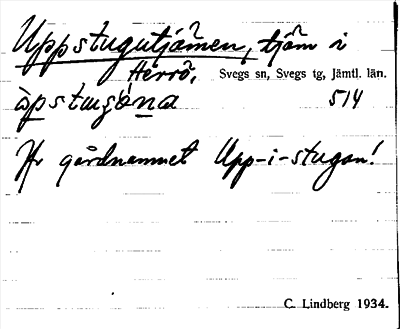 Uppstugutjärnen, tjärn i
Herrö, Svegs sn, Svegs tg, Jämtl. län.
514
Av gårdnamnet Upp-i-stugan!
C. Lindberg 1934.